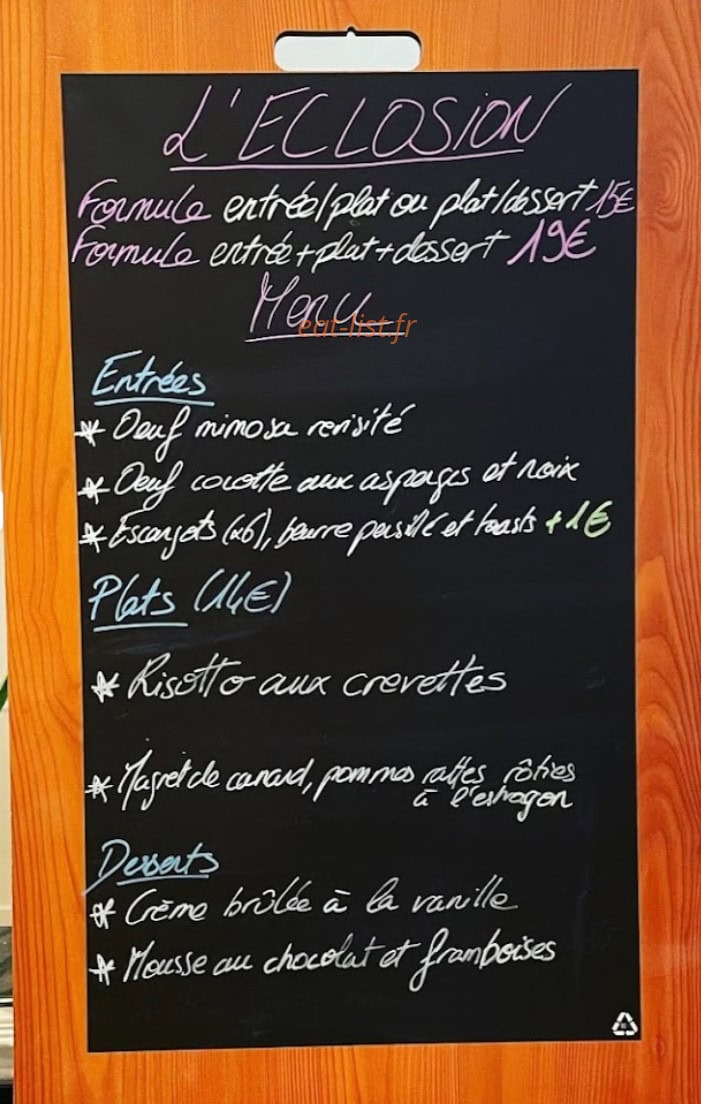 L'ECLOSION
Formule entrée/plat ou plat/dessert 15€
Formule entrée+plat+dessert 19€
Menu
eat-list.fr
Entrées
* Oeuf mimosa revisité
* Oeuf cocotte aux asperges et noix
* Escargots (x6), beurre persillé et toasts +1€
Plats (14€)
* Risotto aux crevettes
* Magret de canard, pommes rattes rôties
à l'estragon
Desserts
* Crème brûlée à la vanille
* Mousse au chocolat et framboises